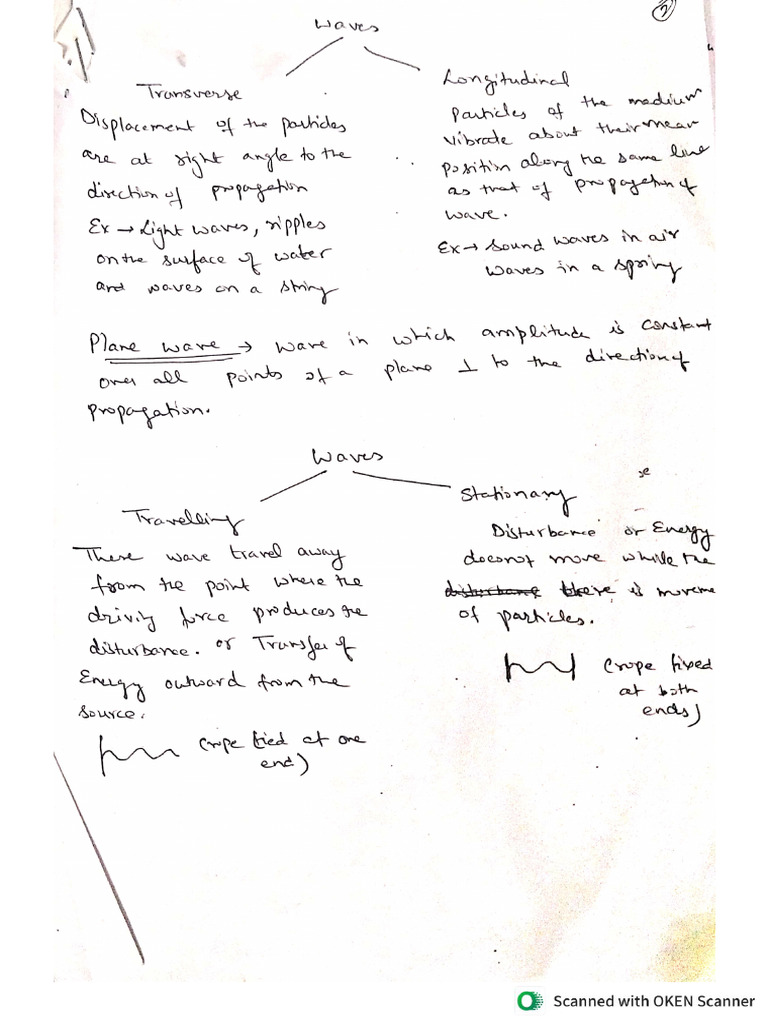 2
Waves
Transverse
Displacement of the particles
are at right angle to the
direction of propagation
Ex → Light waves, ripples
on the surface of water
and waves on a string
Longitudinal
Particles of the medium
vibrate about their mean
position along the same line
as that of propagation of
wave.
Ex → Sound waves in air
waves in a spring
Plane wave → wave in which amplitude is constant
over all points of a plane ⊥ to the direction of
propagation.
Waves
Travelling
These wave travel away
from the point where the
driving force produces the
disturbance. or Transfer of
Energy outward from the
source.
(rope tied at one
end)
Stationary
Disturbance or Energy
doesnot move while the
disturbance there is moveme
of particles.
(rope fixed
at both
ends)
Scanned with OKEN Scanner